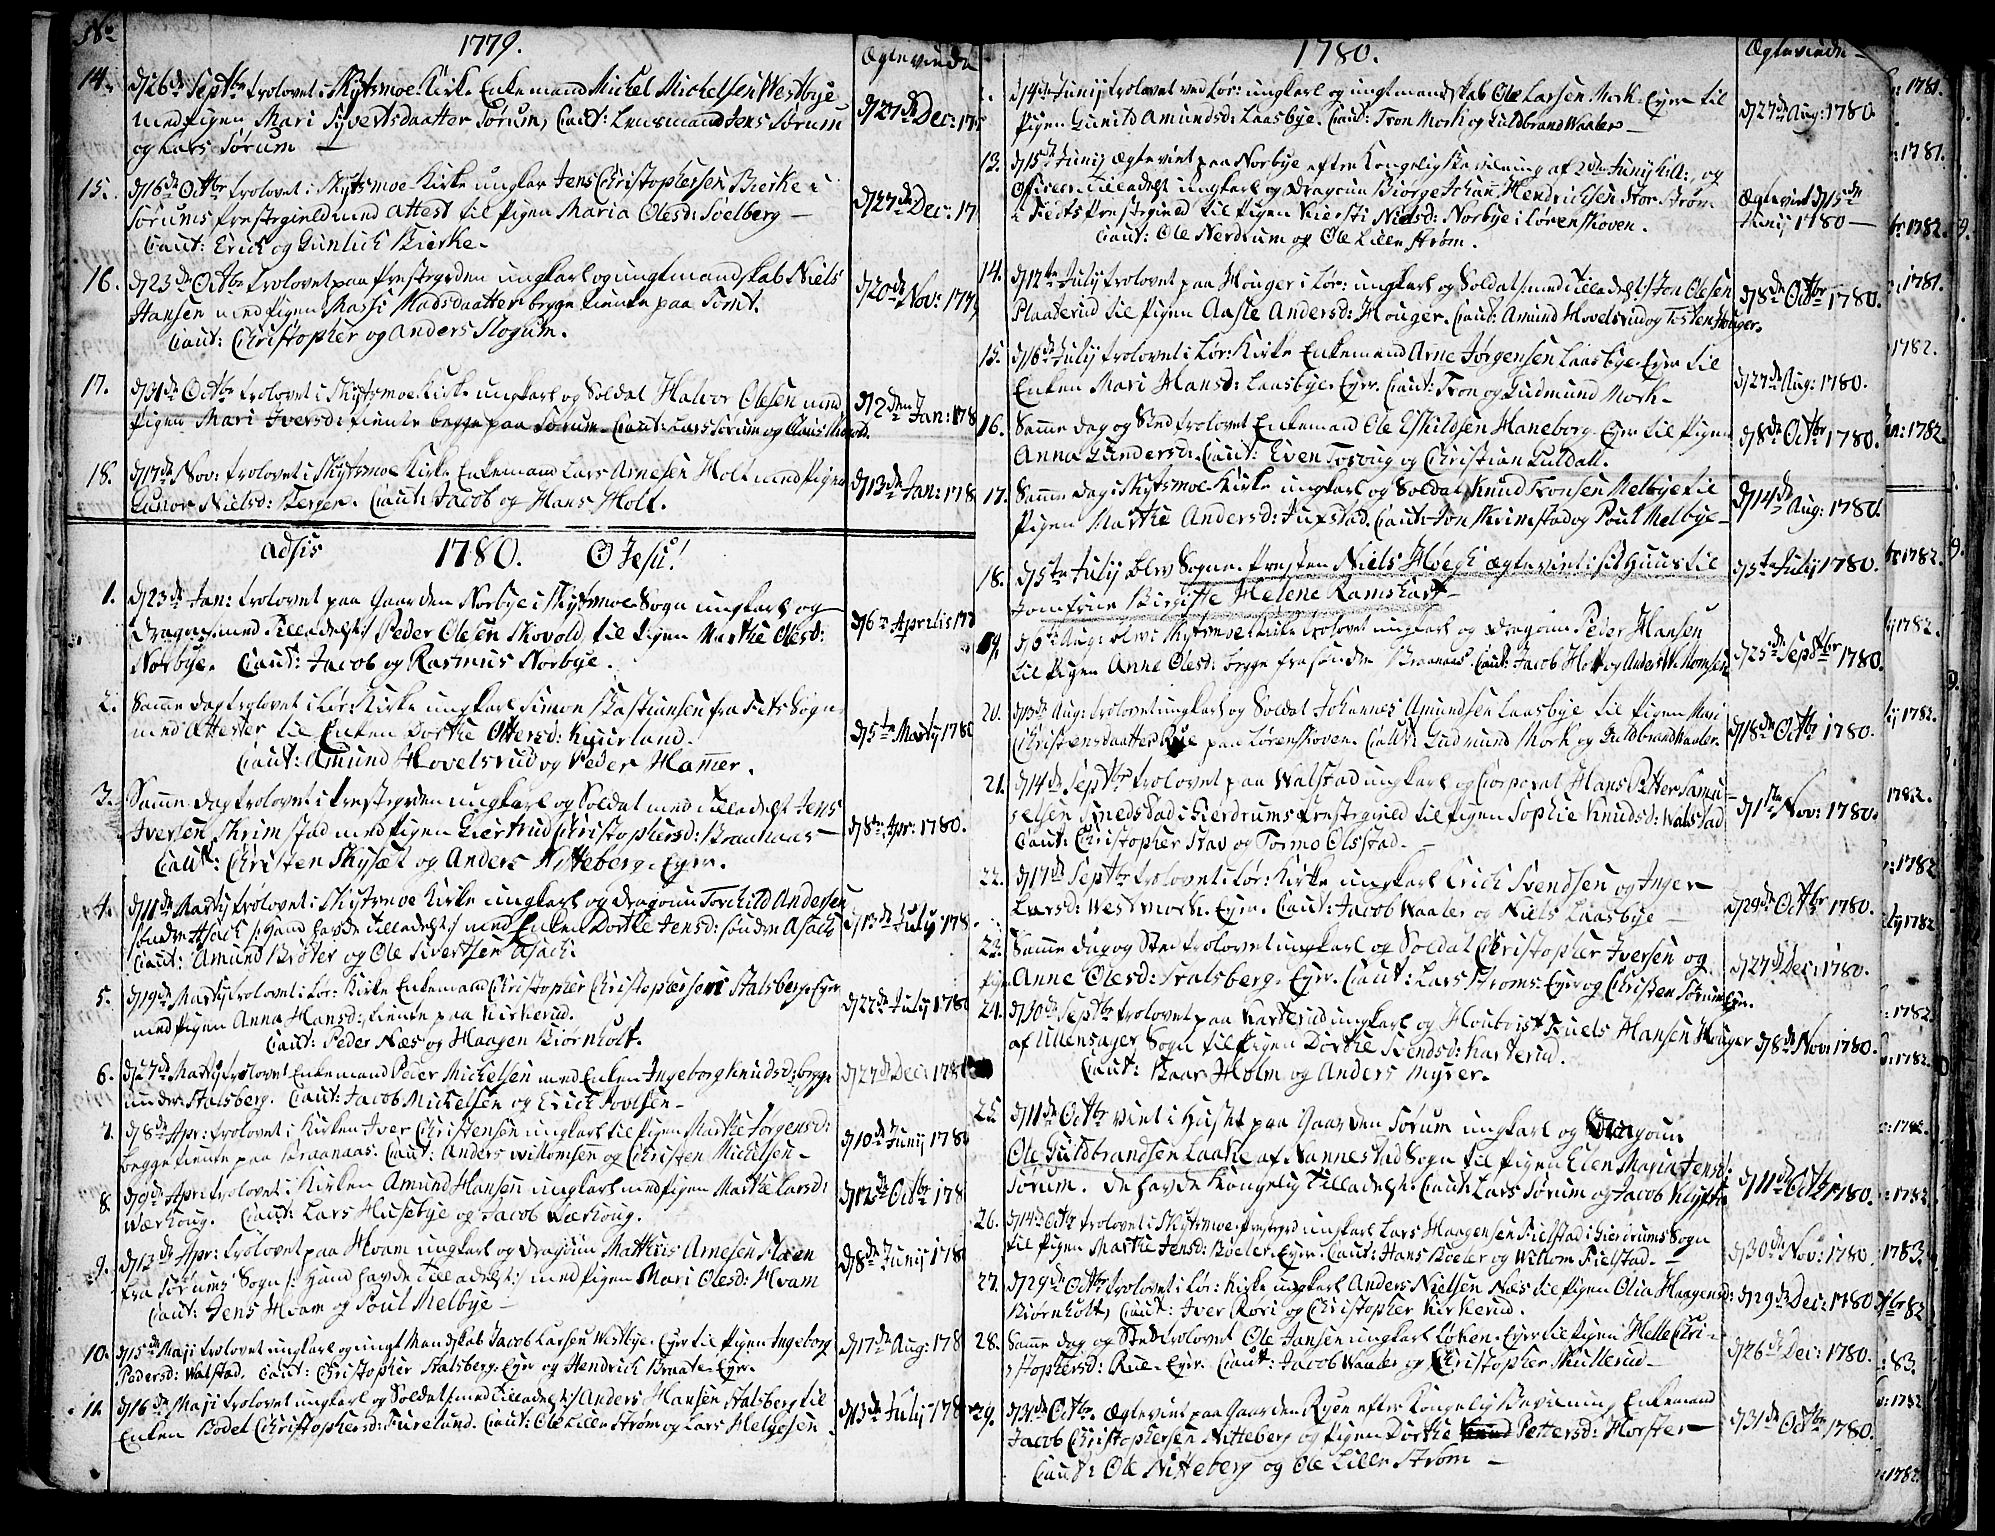 No
1779.
Ægteviede
14. d 26de Septbr trolovet i Skytsmoe Kirke Enkemand Michel Michelsen Westbye
med Pigen Mari Syvertsdaatter Sørum, Caut: Lensmand Jens Sørum
og Lars Sørum —
d 27de Dec: 17
15. d 16de Octbr trolovet i Skytsmoe Kirke ungkar Jens Christophersen Bierke i
Sørums Prestegield med Attest til Pigen Maria Olesd: Soelberg —
Caut: Erich og Gunlich Bierke —
d 27de Dec: 17
16. d 23de Octbr trolovet paa Prestegrden ungkarl og ungt mandskab Niels
Hansen med Pigen Massi Madsdaatter begge tiente paa Tomt.
Caut: Christopher og Anders Slogum.
d 20de Nov: 1779
17. d 31de Octbr trolovet i Skytsmoe Kirke ungkarl og Soldat Halvor Olesen med
Pigen Mari Iversd: tiente begge paa Sørum. Caut: Lars Sørum og Claus
d 2den Jan: 178
18. d 17de Nov: trolovet i Skytsmoe Kirke Enkemand Lars Arnesen Holt med Pigen
Gunor Nielsd: Berger. Caut: Jacob og Hans Holt.
d 13de Jan: 178
adsis 1780. O Jesu!
1. d 23de Jan: trolovet paa Gaarden Norbye i Skytsmoe Sogn ungkarl og
Dragon med Tilladelse Peder Olesen Skovold til Pigen Marthe Olesd:
Norbye. Caut: Jacob og Rasmus Norbye.
d 6te Aprilis 178
2. Samme dag trolovet i Lør: Kirke ungkarl Simon Bastiansen fra Fets Sogn
med Attester til Enken Dorthe Ottersd: Kuurland.
Caut: Amund Hovelsrud og Peder Hamer.
d 5te Martj 1780
3. Samme dag trolovet i Prestegrden ungkarl og Soldat med Tilladelse Jens
Iversen Skrimstad med Pigen Giertrud Christophersd: Braanaas —
Caut: Christen Skysæt og Anders Nitteberg. Eyer.
d 8de Apr: 1780.
4. d 11de Martj trolovet i Skytsmoe Kirke ungkarl og Dragoun Torchild Andersen
søndre Asach /: hand havde Tilladelse :/ med Enken Dorthe Jensd: søndre Asach
Caut: Amund Bröter og Ole Sivertsen Asach.
d 13de July 178
5. d 19de Martj trolovet i Lør: Kirke Enkemand Christopher Christophersen Stalsberg. Eyer
med Pigen Anna Hansd: tiente paa Kirkerud.
Caut: Peder Næs og Haagen Biørnholt.
d 22de July 1780
6. d 27de Martj trolovet Enkemand Peder Michelsen med Enken Ingeborg Knudsd: begge
under Stalsberg. Caut: Jacob Michelsen og Erich Povlsen —
d 27de Dec: 1780
7. d 8de Apr: trolovet i Kirken Iver Christensen ungkarl til Pigen Marthe Jørgensd:
begge tiente paa Braanaas. Caut: Anders Willomsen og Christen Michelsen —
d 10de Junij 1780
8. d 9de Apr: trolovet i Kirken Amund Hansen ungkarl med Pigen Marthe Larsd:
Wærhoug. Caut: Lars Husebye og Jacob Wærhoug.
d 12de Octbr 178
9. d 13de Apr: trolovet paa Hvam ungkarl og Dragoun Mathias Arnesen Flaen
fra Sørums Sogn /: Hand havde Tilladelse :/ med Pigen Mari Olesd: Hvam
Caut: Jens Hvam og Poul Melbye —
d 8de Junij 178
10. d 15de Maji trolovet ungkarl og ungt Mandskab Jacob Larsen Westbye. Eyer til Pigen Ingeborg
Pedersd: Walstad. Caut: Christopher Stalsberg. Eyer og Hendrich Braate. Eyer.
d 17de Aug: 178
11. d 16de Maji trolovet ungkarl og Soldat /: med Tilladelse :/ Anders Hansen Stalsberg til
Enken Bodel Christophersd: Furelund. Caut: Ole Lille Strøm og Lars Helgesen.
d 13de July 178
1780.
Ægteviede —
d 4de Junij trolovet ved Lør: ungkarl og ungt mandskab Ole Larsen Mork. Eyer til
Pigen Gunild Amundsd: Laasbye. Caut: Tron Mork og Guldbrand Waaler —
d 27de Aug: 1780.
13. d 15de Junij Ægteviet paa Norbye efter Kongelig Bevilning af 2den Junij h: A:, og
Officers Tilladelse ungkarl og Dragoun Biørge Johan Hendrichsen Stor Strøm
i Feets Prestegield til Pigen Kiersti Nielsd: Norbye i Lørenskoven.
Caut: Ole Nerdrum og Ole Lille Strøm.
Ægteviet d 15de
Junij 1780 —
14. d 12te July trolovet paa Houger i Lør: ungkarl og Soldat /: med Tilladelse :/ Jon Olesen
Plaaterud til Pigen Aasle Andersd: Houger. Caut: Amund Hovelsrud og Tosten Houger.
d 8de Octbr 1780.
15. d 16de July trolovet i Lør: Kirke Enkemand Arne Jørgensen Laasbye. Eyer til
Enken Mari Hansd: Laasbye. Eyer. Caut: Tron og Gudmund Mork —
d 27de Aug: 1780.
16. Samme dag og Sted trolovet Enkemand Ole Eskildsen Haneborg. Eyer til Pigen
Anna Gundersd: Caut: Even Tosoug og Christian Guldall.
d 8de Octbr 1780.
17. Samme dag i Skytsmoe Kirke ungkarl og Soldat Knud Tronsen Melbye til
Pigen Marthe Andersd: Juxstad. Caut: Jon Skrimstad og Poul Melbye —
d 14de Aug: 1780.
18. d 5te July blev Sogne-Presten Niels Høegh ægteviet i sit Huus til
Jomfrue Birgitte Helene Ramshart —
d 5te July 1780.
19. d 6te Aug: blev i Skytsmoe Kirke trolovet ungkarl og Dragoun Peder Hansen
til Pigen Anne Olesd: begge fra søndre Braanaas. Caut: Jacob Holt og Anders Willomsen
d 25de Septbr 1780.
20. d 13de Aug: trolovet ungkarl og Soldat Johannes Amundsen Laasbye til Pigen Mari
Christensdaatter Rue paa Lørenskoven. Caut: Gudmund Mork og Guldbrand Waaler.
d 18de Octbr 1780.
21. d 14de Septbr trolovet paa Walstad ungkarl og Corporal Hans Petter Samu-
elsen Smedstad i Gierdrums Prestegield til Pigen Sophie Knudsd: Walstad
Caut: Christopher Stav og Tormo Olstad. —
d 1ste Nov: 1780.
22. d 17de Septbr trolovet i Lør: Kirke ungkarl Erich Svendsen og Inger
Larsd: Westmork. Eyer. Caut: Jacob Waaler og Niels Laasbye —
d 29de Octbr 1780.
23. Samme dag og Sted trolovet ungkarl og Soldat Christopher Iversen og
Pigen Anne Olesd: Stalsberg. Eyer. Caut: Lars Strøms-Eyer og Christen Sørum Eyer.
d 27de Dec: 1780.
24. d 30de Septbr trolovet paa Karterud ungkarl og Houboist Truels Hansen Houger
af Ullensager Sogn til Pigen Dorthe Svendsd: Karterud.
Caut: Baar Holm og Anders Myrer.
d 8de Nov: 1780.
25. d 11de Octbr viet i Huset paa Gaarden Sørum ungkarl og Dragoun
Ole Guldbrandsen Laache af Nannestad Sogn til Pigen Elen Maria Jensd:
Sørum. De havde Kongelig Tilladelse. Caut: Lars Sørum og Jacob Kløfte
d 11de Octbr 1780.
26. d 14de Octbr trolovet i Skytsmoe Prestegrd ungkarl Lars Haagensen Fielstad i Gierdrums Sogn
til Pigen Marthe Jensd: Boeler. Eyer. Caut: Hans Boeler og Willom Fielstad. —
d 30de Nov: 1780.
27. d 29de Octbr trolovet i Lør: Kirke ungkarl Anders Nielsen Næs til Pigen Olia Haagensd:
Biørnholt, Caut: Iver Røri og Christopher Kirkerud.
d 29de Dec: 1780
28. Samme dag og Sted trolovet Ole Jansen ungkarl Løken. Eyer til Pigen Helle Chri-
stophersd: Rue. Eyer. Caut: Jacob Waaler og Christopher Skullerud —
d 26de Dec: 1780.
29. d 31de Octbr. Ægteviet paa Gaarden Ryen efter Kongelig Bevilning Enkemand
Jacob Christophersen Nitteberg og Pigen Dorthe Pettersd: Horster —
Caut: Ole Nitteberg og Ole Lille Strøm —
d 31de Octbr 1780.